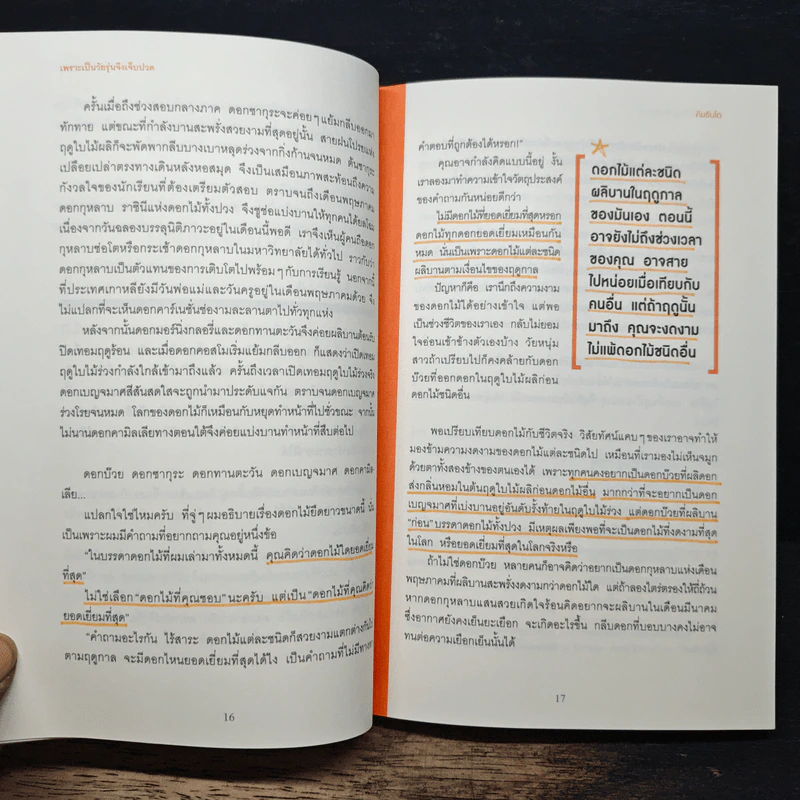 เพราะเป็นวัยรุ่นจึงเจ็บปวด
ครั้นเมื่อถึงช่วงสอบกลางภาค ดอกซากุระจะค่อยๆ แย้มกลีบออกมา
ทักทาย แต่ขณะที่กำลังบานสะพรั่งสวยงามที่สุดอยู่นั้น สายฝนโปรยแห่ง
ฤดูใบไม้ผลิก็จะพัดพากลีบบางเบาหลุดร่วงจากกิ่งก้านจนหมด ต้นซากุระ
เปลือยเปล่าตรงทางเดินหลังหอสมุด จึงเป็นเสมือนภาพสะท้อนถึงความ
กังวลใจของนักเรียนที่ต้องเตรียมตัวสอบ ตราบจนถึงเดือนพฤษภาคม
ดอกกุหลาบ ราชินีแห่งดอกไม้ทั้งปวง จึงชูช่อแบ่งบานให้ทุกคนได้ยลโฉม
เนื่องจากวันฉลองบรรลุนิติภาวะอยู่ในเดือนนี้พอดี เราจึงเห็นผู้คนถือดอก
กุหลาบช่อโตหรือกระเช้าดอกกุหลาบในมหาวิทยาลัยได้ทั่วไป ราวกับว่า
ดอกกุหลาบเป็นตัวแทนของการเติบโตไปพร้อมๆ กับการเรียนรู้ นอกจากนี้
ที่ประเทศเกาหลียังมีวันพ่อแม่และวันครูอยู่ในเดือนพฤษภาคมด้วย จึง
ไม่แปลกที่จะเห็นดอกคาร์เนชั่นช่องามละลานตาไปทั่วทุกแห่ง
หลังจากนั้นดอกมอร์นิ่งกลอรี่และดอกทานตะวันจึงค่อยผลิบานต้อนรับ
ปิดเทอมฤดูร้อน และเมื่อดอกคอสโมเริ่มแย้มกลีบออก ก็แสดงว่าเปิดเทอม
ฤดูใบไม้ร่วงกำลังใกล้เข้ามาถึงแล้ว ครั้นถึงเวลาเปิดเทอมฤดูใบไม้ร่วงจริง
ดอกเบญจมาศสีสันสดใสจะถูกนำมาประดับแจกัน ตราบจนดอกเบญจมาศ
ร่วงโรยจนหมด โลกของดอกไม้ก็เหมือนกับหยุดทำหน้าที่ไปชั่วขณะ จากนั้น
ไม่นานดอกคามิลเลียทางตอนใต้จึงค่อยแบ่งบานทำหน้าที่สืบต่อไป
ดอกบ๊วย ดอกซากุระ ดอกทานตะวัน ดอกเบญจมาศ ดอกคามิล-
เลีย...
แปลกใจใช่ไหมครับ ที่จู่ๆ ผมอธิบายเรื่องดอกไม้ยืดยาวขนาดนี้ นั่น
เป็นเพราะผมมีคำถามที่อยากถามคุณอยู่หนึ่งข้อ
"ในบรรดาดอกไม้ที่ผมเล่ามาทั้งหมดนี้ คุณคิดว่าดอกไม้ใดยอดเยี่ยม
ที่สุด"
ไม่ใช่เลือก "ดอกไม้ที่คุณชอบ" นะครับ แต่เป็น "ดอกไม้ที่คุณคิดว่า
ยอดเยี่ยมที่สุด"
"คำถามอะไรกัน ไร้สาระ ดอกไม้แต่ละชนิดก็สวยงามแตกต่างกันไป
ตามฤดูกาล จะมีดอกไหนยอดเยี่ยมที่สุดได้ไง เป็นคำถามที่ไม่มีทางหา
16
คิมรันโด
คำตอบที่ถูกต้องได้หรอก!"
คุณอาจกำลังคิดแบบนี้อยู่ งั้น
เราลองมาทำความเข้าใจวัตถุประสงค์
ของคำถามกันหน่อยดีกว่า
ไม่มีดอกไม้ที่ยอดเยี่ยมที่สุดหรอก
ดอกไม้ทุกดอกยอดเยี่ยมเหมือนกัน
หมด นั่นเป็นเพราะดอกไม้แต่ละชนิด
ผลิบานตามเงื่อนไขของฤดูกาล
ปัญหาก็คือ เรานึกถึงความงาม
ของดอกไม้ได้อย่างเข้าใจ แต่พอ
เป็นช่วงชีวิตของเราเอง กลับไม่ยอม
ใจอ่อนเข้าข้างตัวเองบ้าง วัยหนุ่ม
สาวถ้าเปรียบไปก็คงคล้ายกับดอก
บ๊วยที่ออกดอกในฤดูใบไม้ผลิก่อน
ดอกไม้ชนิดอื่น
ดอกไม้แต่ละชนิด
ผลิบานในฤดูกาล
ของมันเอง ตอนนี้
อาจยังไม่ถึงช่วงเวลา
ของคุณ อาจสาย
ไปหน่อยเมื่อเทียบกับ
คนอื่น แต่ถ้าฤดูนั้น
มาถึง คุณจะงดงาม
ไม่แพ้ดอกไม้ชนิดอื่น
พอเปรียบเทียบดอกไม้กับชีวิตจริง วิสัยทัศน์แคบๆ ของเราอาจทำให้
มองข้ามความงดงามของดอกไม้แต่ละชนิดไป เหมือนที่เรามองไม่เห็นจมูก
ด้วยตาทั้งสองข้างของตนเองได้ เพราะทุกคนคงอยากเป็นดอกบ๊วยที่ผลิดอก
ส่งกลิ่นหอมในต้นฤดูใบไม้ผลิก่อนดอกไม้อื่น มากกว่าที่จะอยากเป็นดอก
เบญจมาศที่เบ่งบานอยู่อันดับรั้งท้ายในฤดูใบไม้ร่วง แต่ดอกบ๊วยที่ผลิบาน
"ก่อน" บรรดาดอกไม้ทั้งปวง มีเหตุผลเพียงพอที่จะเป็นดอกไม้ที่งดงามที่สุด
ในโลก หรือยอดเยี่ยมที่สุดในโลกจริงหรือ
ถ้าไม่ใช่ดอกบ๊วย หลายคนก็อาจคิดว่าอยากเป็นดอกกุหลาบแห่งเดือน
พฤษภาคมที่ผลิบานสะพรั่งงดงามกว่าดอกไม้ใด แต่ถ้าลองไตร่ตรองให้ถี่ถ้วน
หากดอกกุหลาบแสนสวยเกิดใจร้อนคิดอยากจะผลิบานในเดือนมีนาคม
ซึ่งอากาศยังคงเย็นยะเยือก จะเกิดอะไรขึ้น กลีบดอกที่บอบบางคงไม่อาจ
ทนต่อความเยือกเย็นนั้นได้
17